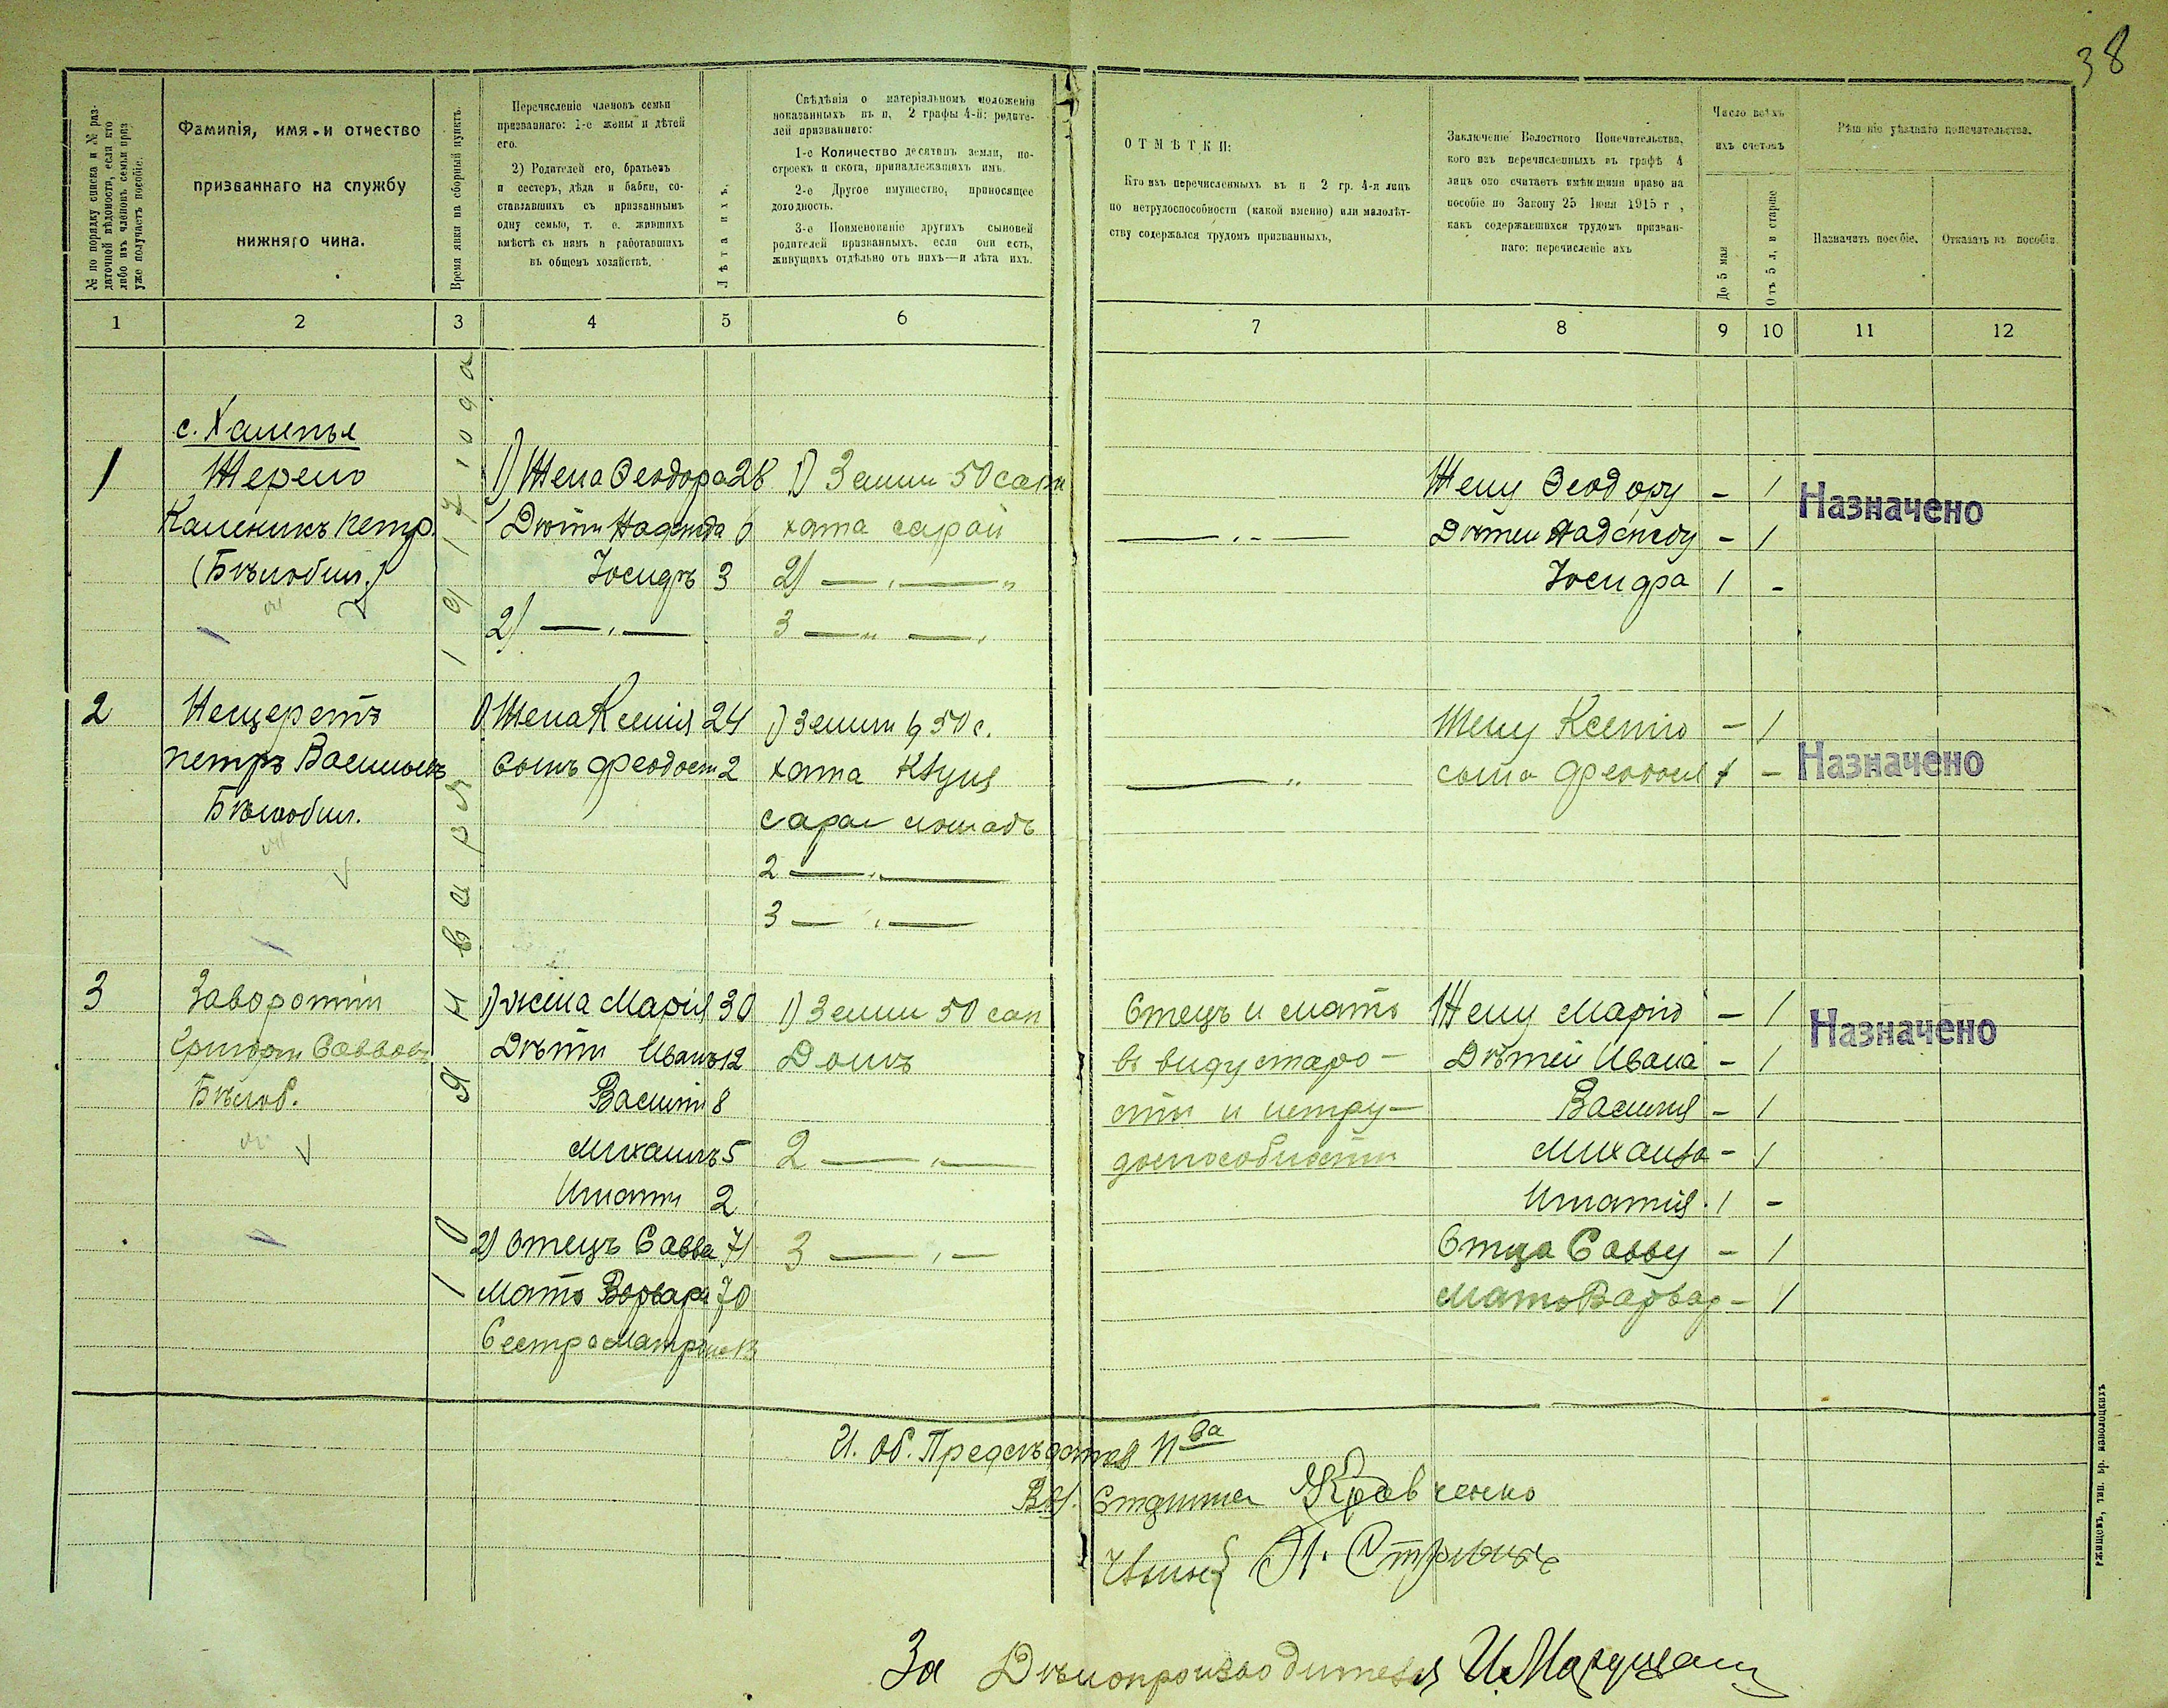 38
№ по порядку списка и № раз-
даточной вѣдомости, если кто
либо изъ членовъ семьи приз
уже получаетъ пособіе.
Фамилія, имя и отчество
призваннаго на службу
нижняго чина.
Время явки на сборный пунктъ.
Перечисленіе членовъ семьи
призваннаго: 1-е жены и дѣтей
его.
2) Родителей его, братьевъ
и сестеръ, дѣда и бабки, со-
ставлявшихъ съ призваннымъ
одну семью, т. е. жившихъ
вмѣстѣ съ нимъ и работавшихъ
въ общемъ хозяйствѣ.
Лѣта ихъ.
Свѣдѣнія о матеріальномъ положеніи
показанныхъ въ п, 2 графы 4-й: родите-
лей призваннаго:
1-е Количество десятинъ земли, по-
строекъ и скота, принадлежащихъ имъ.
2-е Другое имущество, приносящее
доходность.
3-е Поименованіе другихъ сыновей
родителей призванныхъ, если они есть,
живущихъ отдѣльно отъ нихъ—и лѣта ихъ.
ОТМѢТКИ:
Кто изъ перечисленныхъ въ п 2 гр. 4-я лицъ
по нетрудоспособности (какой именно) или малолѣт-
ству содержался трудомъ призванныхъ,
Заключеніе Волостного Попечительства,
кого изъ перечисленныхъ въ графѣ 4
лицъ оно считаетъ имѣющими право на
пособіе по Закону 25 Іюня 1915 г,
какъ содержавшихся трудомъ призван-
наго: перечисленіе ихъ
Число всѣхъ
ихъ счетомъ
До 5 мая
Отъ 5 л, и старше
Рѣшеніе уѣзднаго попечительства.
Назначить пособіе.
Отказать въ пособіи
1 2 3 4 5 6 7 8 9 10 11 12
10 Января 1917 года
с. Халепья
1 Каленикъ Петр. (Бѣлобил.)
1) Жена Феодора 28
Дѣти Надежда
Іосифъ 3
2) — " —
1) Земли 50 саж
хата сарай
2) — " — "
3 — " — "
— " —
Жену Феодору – 1
Дѣтей Надежду – 1
Іосифа 1 –
Назначено
2 Нещеретъ
Петръ Васильевъ
Бѣлобил.
1) Жена Ксенія 24
сынъ Феодосій 2
1) Земли 50 с.
хата
сарай лошадь
2 — " —
3 — " —
— "
Жену Ксенію – 1
сына Феодосія 1 –
Назначено
3 Заворотній
Григорій Саввовъ
Бѣлоб.
1) жена Марія 30
Дѣти Иванъ 12
Василій 8
Михаилъ 5
Игнатій 2
2) Отецъ Савва 71
Мать Варвара 70
Сестра Матрена 13
1) Земли 50 саж
Домъ
2 — " —
3 — " —
Отецъ и мать
въ виду старо-
сти и нетру-
доспособности
Жену Марію – 1
Дѣтей Ивана – 1
Василія – 1
Михаила – 1
Игнатія 1 –
Отца Савву – 1
Мать Варвар – 1
Назначено
И. об. Предсѣдателя П-ва
Вол. Старшина Кравченко
За Дѣлопроизводителя